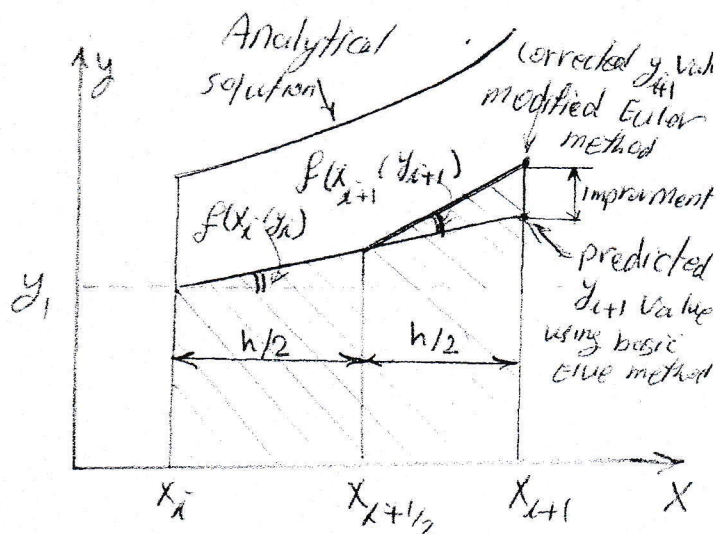 y
Analytical
solution
corrected y i+1 valu
modified Euler
method
f(x i+1 (y i+1)
f(x i (y i)
improvment
predicted
y i+1 value
using basic
method
y 1
h/2
h/2
x i
x i+1/2
x i+1
x